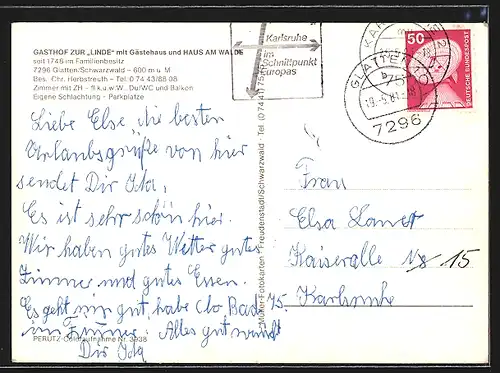 GASTHOF ZUR „LINDE" mit Gästehaus und HAUS AM WALDE
seit 1748 im Familienbesitz
7296 Glatten/Schwarzwald – 600 m ü. M
Bes. Chr. Herbstreuth – Tel. 0 74 43/88 08
Zimmer mit ZH – fl.k.u.w W., Du/WC und Balkon
Eigene Schlachtung - Parkplätze
Karlsruhe
im
Schnittpunkt
Europas
GLATTEN
7296
50
DEUTSCHE BUNDESPOST
Liebe Else die besten
Urlaubsgrüße von hier
sendet Dir Ida,
Es ist sehr schön hier.
Wir haben gutes Wetter gutes
Zimmer und gutes Essen.
Es geht mir gut, habe Clo Bad
im Zimmer. Alles gut
Dir Ida
Frau
Elsa
Kaiseralle 15
75. Karlsruhe
PERUTZ-Coloraufnahme Nr. 3938
Freudenstadt/Schwarzwald